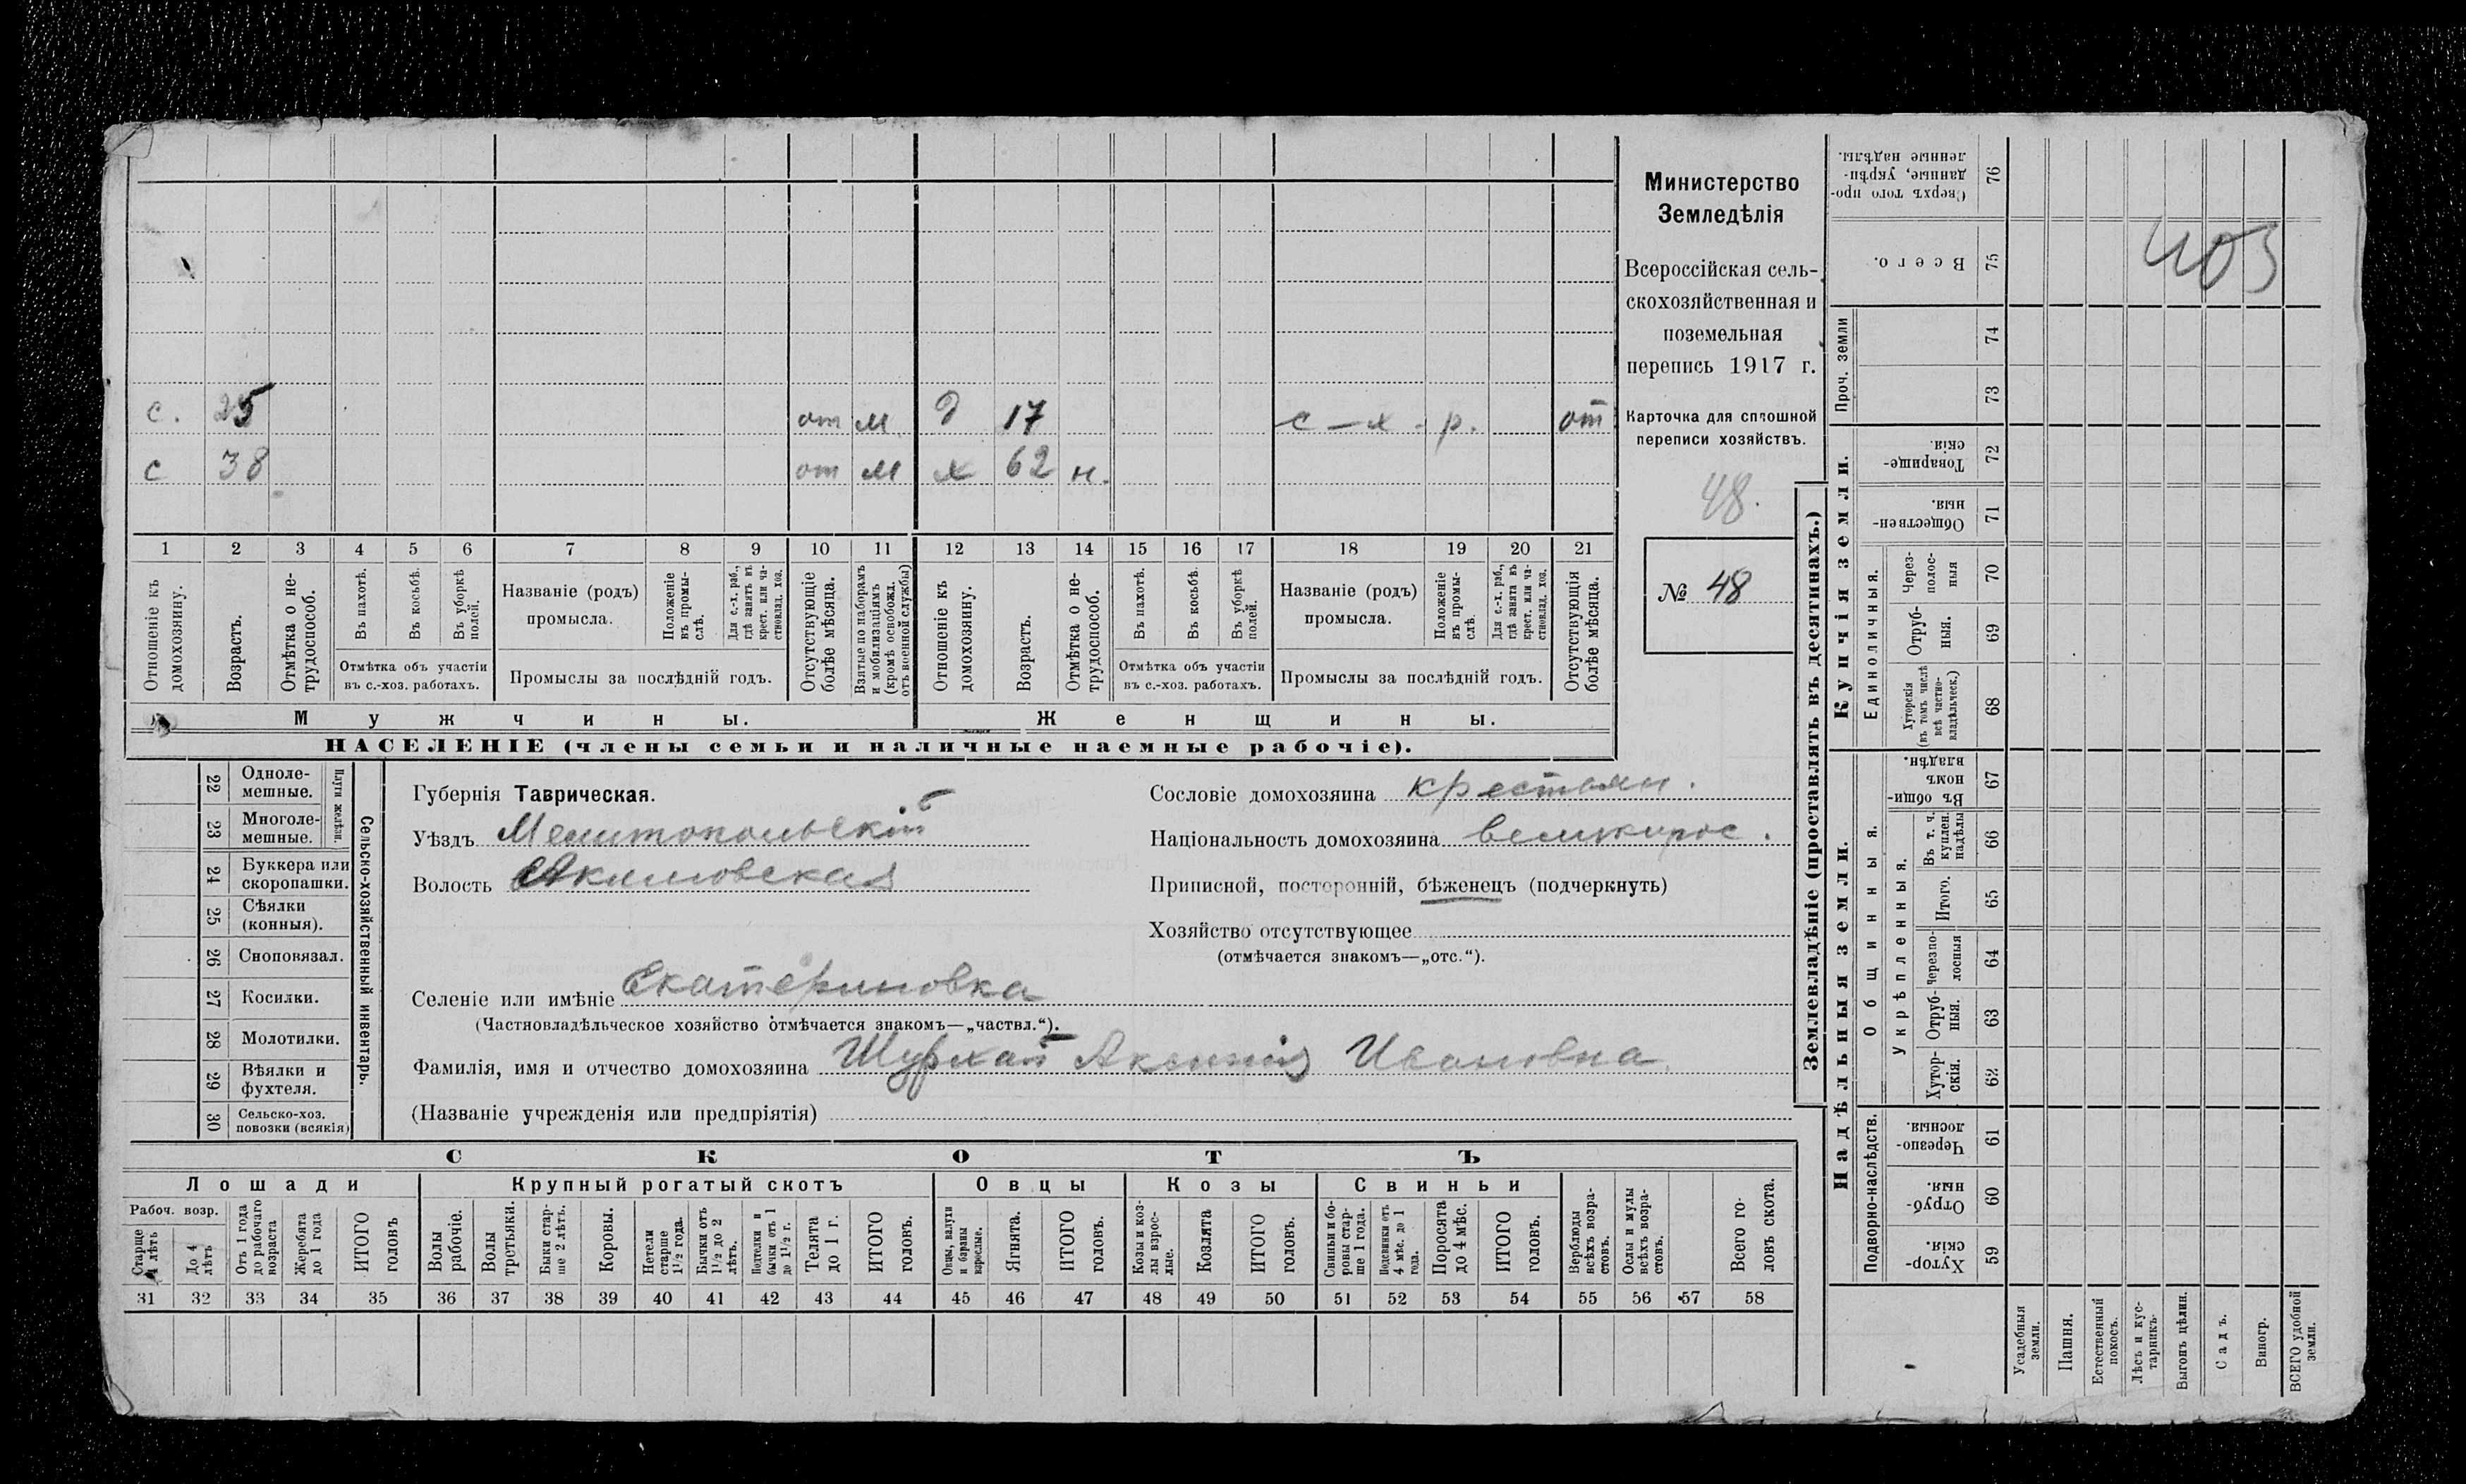 с. 25 от м. д 17 с – х – р. от
с 38 от м х 62 н.
1 2 3 4 5 6 7 8 9 10 11 12 13 14 15 16 17 18 19 20 21
Отношеніе къ домохозяину.
Возрастъ.
Отмѣтка о не-трудоспособ.
Въ пахотѣ.
Въ косьбѣ.
Въ уборкѣ полей.
Отмѣтка объ участіи
въ с.-хоз. работахъ.
Названіе (родъ)
промысла.
Положеніе въ промы-слѣ.
Для с.-х. раб., гдѣ занятъ въ крест. или ча-стновлад. хоз.
Промыслы за послѣдній годъ.
Отсутствующіе болѣе мѣсяца.
Взятые по наборамъ и мобилизаціямъ (кромѣ освобожд. отъ военной службы)
Отношеніе къ домохозяину.
Возрастъ.
Отмѣтка о не-трудоспособ.
Въ пахотѣ.
Въ косьбѣ.
Въ уборкѣ полей.
Отмѣтка объ участіи
въ с.-хоз. работахъ.
Названіе (родъ)
промысла.
Положеніе въ промы-слѣ.
Для с.-х. раб., гдѣ занята въ крест. или ча-стновлад. хоз.
Промыслы за послѣдній годъ.
Отсутствующія болѣе мѣсяца.
Мужчины. Женщины.
НАСЕЛЕНІЕ (члены семьи и наличные наемные рабочіе).
Министерство
Земледѣлія
Всероссійская сель-
скохозяйственная и
поземельная
перепись 1917 г.
Карточка для сплошной
переписи хозяйствъ.
48.
№ 48
Сельско-хозяйственный инвентарь.
Плуги желѣзн.
22 Одноле-мешные.
23 Многоле-мешные.
24 Буккера или скоропашки.
25 Сѣялки (конныя).
26 Сноповязал.
27 Косилки.
28 Молотилки.
29 Вѣялки и фухтеля.
30 Сельско-хоз. повозки (всякія)
Губернія Таврическая.
Уѣздъ Мелитопольскій
Волость Акимовская
Сословіе домохозяина крестьян.
Національность домохозяина великорос.
Приписной, посторонній, бѣженецъ (подчеркнуть)
Хозяйство отсутствующее
(отмѣчается знакомъ—„отс.“).
Селеніе или имѣніе Екатериновка
(Частновладѣльческое хозяйство отмѣчается знакомъ—„частвл.“).
Фамилія, имя и отчество домохозяина Аксинія Ивановна
(Названіе учрежденія или предпріятія)
СКОТЪ
Лошади Крупный рогатый скотъ Овцы Козы Свиньи
Рабоч. возр.
Старше 4 лѣтъ
До 4 лѣтъ
Отъ 1 года до рабочаго возраста
Жеребята до 1 года
ИТОГО головъ
Волы рабочіе.
Волы третьяки.
Быки стар-ше 2 лѣтъ.
Коровы.
Нетели старше 1½ года.
Бычки отъ 1½ до 2 лѣтъ.
Подтелки и бычки отъ 1 до 1½ г.
Телята до 1 г.
ИТОГО головъ.
Овцы, валухи и бараны взрослые.
Ягнята.
ИТОГО головъ.
Козы и коз-лы взрос-лые.
Козлята
ИТОГО головъ.
Свиньи и бо-ровы стар-ше 1 года.
Подсвинки отъ 4 мѣс. до 1 года.
Поросята до 4 мѣс.
ИТОГО головъ.
Верблюды всѣхъ возра-стовъ.
Ослы и мулы всѣхъ возра-стовъ.
Всего го-ловъ скота.
31 32 33 34 35 36 37 38 39 40 41 42 43 44 45 46 47 48 49 50 51 52 53 54 55 56 57 58
Землевладѣніе (проставлять въ десятинахъ.)
Сверхъ того про-данные, укрѣп-ленные надѣлы. 76
Всего. 75
403
Проч. земли
74
73
Купчія земли.
Товарище-скія. 72
Обществен-ныя 71
Единоличныя.
Через-полос-ныя 70
Отруб-ныя. 69
Хуторскія (въ томъ числѣ всѣ частно-владѣльческ.) 68
Надѣльныя земли.
Общинныя.
Въ общи-номъ владѣн. 67
Укрѣпленныя.
Въ т. ч. куплен. надѣлы 66
Итого. 65
Черезпо-лосныя 64
Отруб-ныя. 63
Хутор-скія. 62
Подворно-наслѣдств.
Черезпо-лосныя. 61
Отруб-ныя. 60
Хутор-скія. 59
Усадебныя земли.
Пашня.
Естественный покосъ.
Лѣсъ и кус-тарникъ.
Выгонъ цѣлин.
Садъ.
Виногр.
ВСЕГО удобной земли.